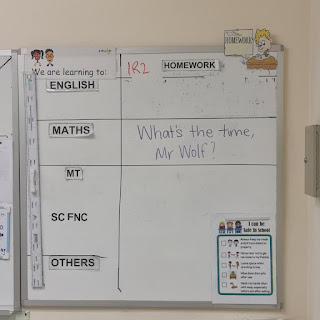 We are learning to:
1R2
HOMEWORK
HOMEWORK
ENGLISH
MATHS
What's the time,
Mr Wolf?
MT
SC FNC
OTHERS
I can be
Safe in School